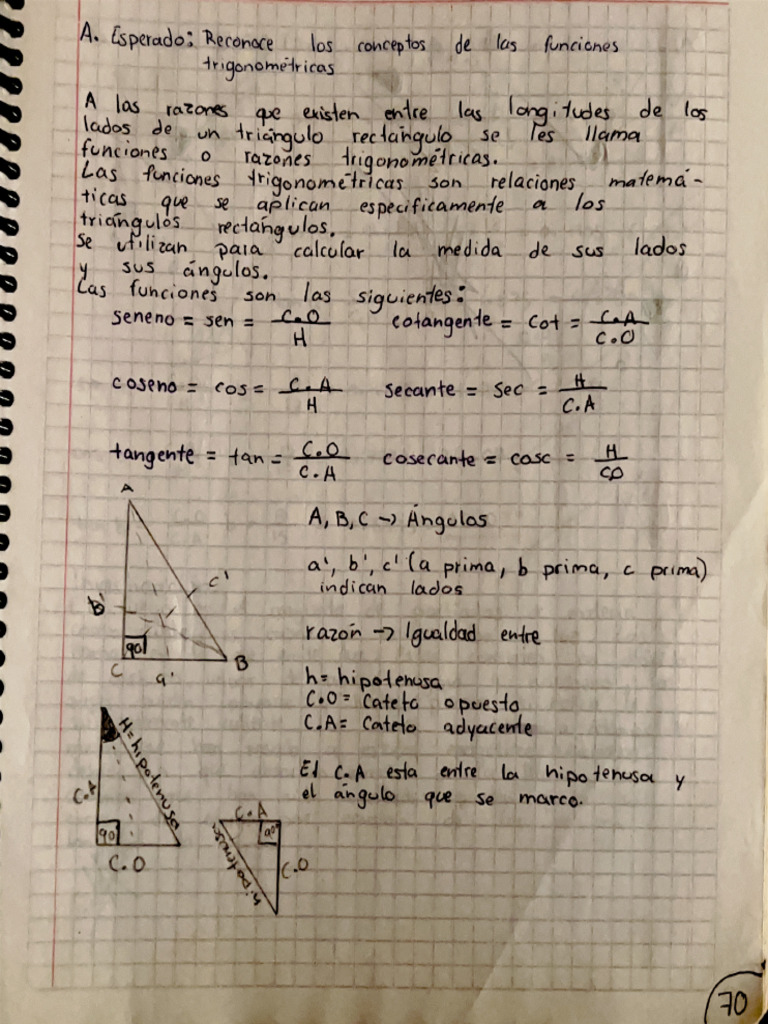 A. Esperado: Reconoce los conceptos de las funciones
trigonométricas
A las razones que existen entre las longitudes de los
lados de un triángulo rectángulo se les llama
funciones o razones trigonométricas.
Las funciones trigonométricas son relaciones matemá-
ticas que se aplican especificamente a los
triángulos rectángulos.
Se utilizan para calcular la medida de sus lados
y sus ángulos.
Las funciones son las siguientes:
seneno = sen = C.O / H    cotangente = Cot = C.A / C.O
coseno = cos = C.A / H    secante = Sec = H / C.A
tangente = tan = C.O / C.A    cosecante = cosc = H / CO
A
B'
c'
90
C
a'
B
A, B, C -> Ángulos
a', b', c' (a prima, b prima, c prima)
indican lados
razón -> Igualdad entre
h= hipotenusa
C.O = Cateto opuesto
C.A = Cateto adyacente
El C.A esta entre la hipotenusa y
el ángulo que se marco.
H= hipotenusa
C.A
90
C.O
C.A
hipotenusa
C.O
70